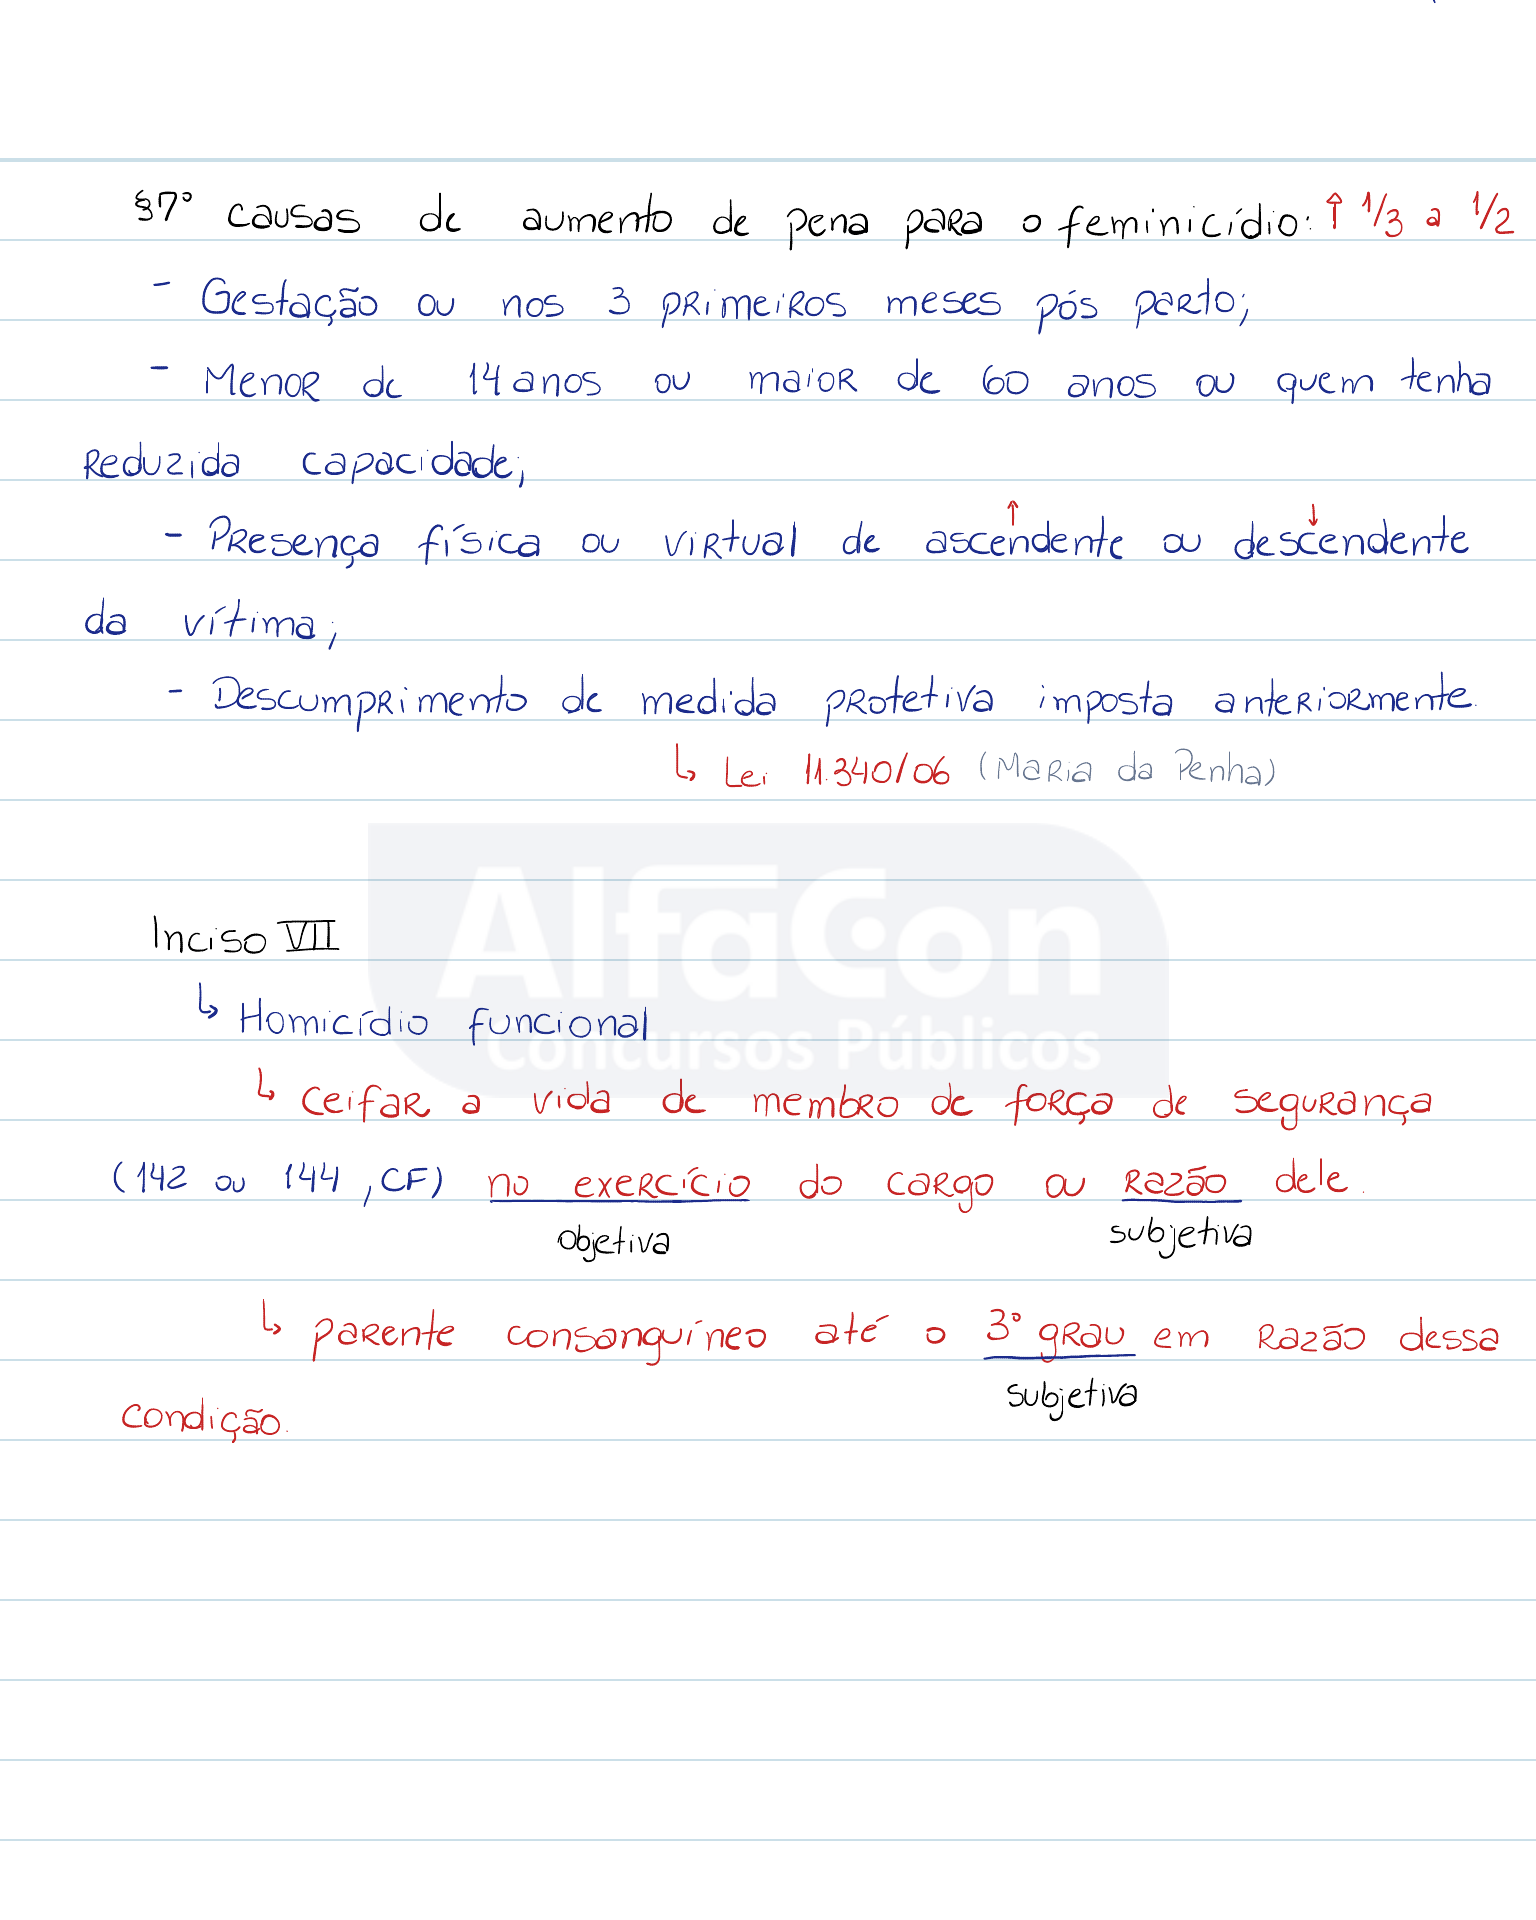 §7° causas de aumento de pena para o feminicídio: ↑ 1/3 a 1/2
- Gestação ou nos 3 primeiros meses pós parto;
- Menor de 14 anos ou maior de 60 anos ou quem tenha
reduzida capacidade;
- Presença física ou virtual de ascendente ↑ ou descendente ↓
da vítima;
- Descumprimento de medida protetiva imposta anteriormente.
↳ Lei 11.340/06 (Maria da Penha)
AlfaCon
Concursos Públicos
Inciso VII
↳ Homicídio funcional
↳ ceifar a vida de membro de força de segurança
(142 ou 144, CF) no exercício do cargo ou razão dele.
objetiva subjetiva
↳ parente consanguíneo até o 3° grau em razão dessa
subjetiva
condição.